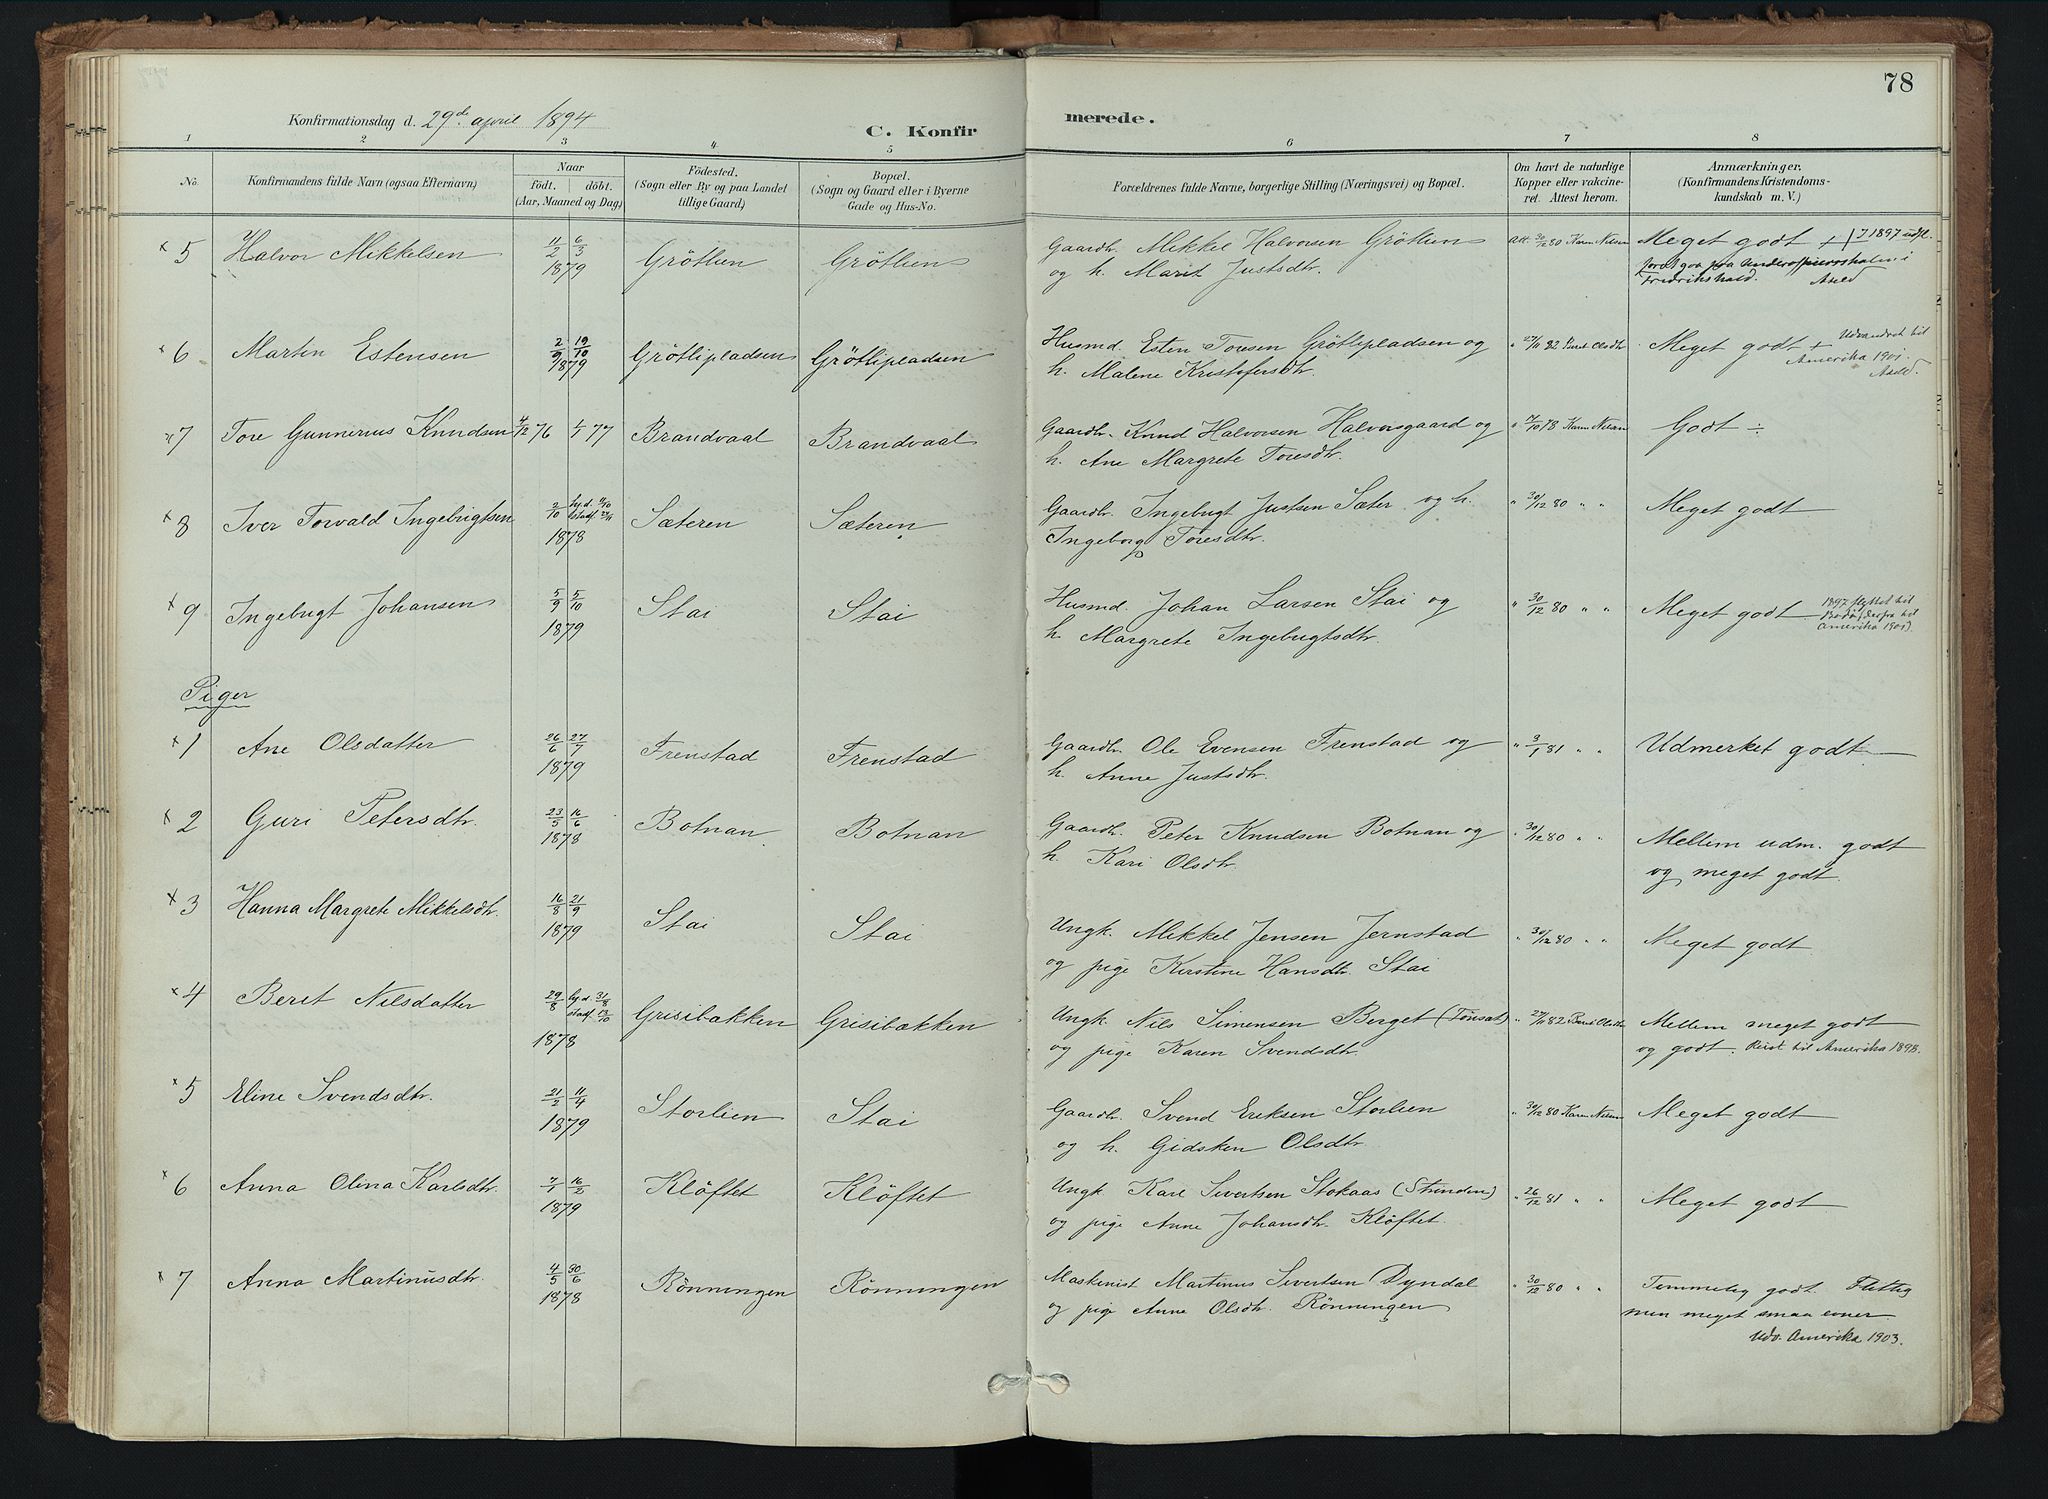 78
Konfirmationsdag d. 29de april 1894
C. Konfir merede.
1 2 3 4 5 6 7 8
No.
Konfirmandens fulde Navn (ogsaa Efternavn)
Naar
födt. döbt.
(Aar, Maaned og Dag)
Födested.
(Sogn eller By og paa Landet
tillige Gaard)
Bopæl.
(Sogn og Gaard eller i Byerne
Gade og Hus-No.
Forældrenes fulde Navne, borgerlige Stilling (Næringsvei) og Bopæl.
Om havt de naturlige
Kopper eller vakcine-
ret. Attest herom.
Anmærkninger.
(Konfirmandens Kristendoms-
kundskab m. V.)
x 5 Halvor Mikkelsen 11/2 6/3 1879 Grötlien Grötlien Gaardbr. Mikkel Halvorsen Grötlien att. 30/12 80 Karen Nilsen Meget godt + 1897 udfl.
og h. Marit Justsdtr.
Fredrikshald.
x 6 Martin Estensen 2/9 19/10 1879 Grötlipladsen Grötlipladsen Husmd. Esten Toresen Grötlipladsen og " 27/11 82 Beret Olsdtr. Meget godt + Udvandret til
h. Malene Kristofersdtr. Amerika 1901.
x 7 Tore Gunnerius Knudsen 4/12 76 1/1 77 Brandvaal Brandvaal Gaardbr. Knud Halvorsen Halvorsgaard og " 7/10 78 Karen Nilsen Godt ÷
h. Ane Margrete Toresdtr.
x 8 Iver Torvald Ingebrigtsen 2/10 hj.d. stadf. 1878 Sæteren Sæteren Gaardbr. Ingebrigt Justsen Sæter og h. " 30/12 80 " " Meget godt
Ingeborg Toresdtr.
x 9 Ingebrigt Johansen 5/9 5/10 1879 Stai Stai Husmd. Johan Larsen Stai og " 30/12 80 " " Meget godt 1897 flyttet til
Bodö (derfra til
Amerika 1901).
h. Margrete Ingebrigtsdtr.
Piger
x 1 Ane Olsdatter 26/6 27/7 1879 Frenstad Frenstad Gaardbr. Ole Evensen Frenstad og " 3/1 81 " " Udmerket godt
h. Anne Justsdtr.
x 2 Guri Petersdtr. 23/5 16/6 1878 Botnan Botnan Gaardbr. Peter Knudsen Botnan og " 30/12 80 " " Mellem udm. godt
h. Kari Olsdtr. og meget godt.
x 3 Hanna Margrete Mikkelsdtr. 16/8 21/9 1879 Stai Stai Ungk. Mikkel Jensen Jernstad " 30/12 80 " " Meget godt
og pige Kirstine Hansdtr. Stai
x 4 Beret Nilsdatter 29/8 hj.d. 31/8 stadf. 13/10 1878 Grisibakken Grisibakken Ungk. Nils Simensen Berget (Tönset) " 27/11 82 Beret Olsdtr. Mellem meget godt
og pige Karen Svendsdtr. og godt. Reist til Amerika 1898.
x 5 Eline Svendsdtr. 21/2 11/4 1879 Storlien Stai Gaardbr. Svend Eriksen Storlien " 30/12 80 Karen Nilsen Meget godt
og h. Gidsken Olsdtr.
x 6 Anna Olina Karlsdtr. 7/1 16/2 1879 Klöftet Klöftet Ungk. Karl Sivertsen Stokaas (Strinden) " 26/12 81 " " Meget godt
og pige Anne Johansdtr. Klöftet.
x 7 Anna Martinusdtr. 4/5 30/6 1878 Rönningen Rönningen Maskinist Martinus Sivertsen Dyndal " 30/12 80 " " Temmelig godt. Flittig
og pige Anne Olsdtr. Rönningen men meget smaa evner.
Udv. Amerika 1903.